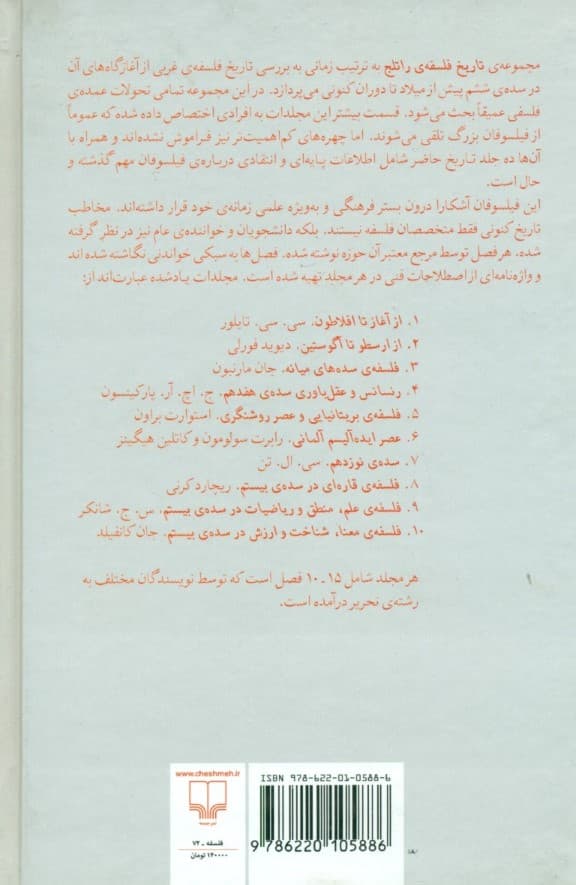 مجموعه‌ی تاریخ فلسفه‌ی راتلج به ترتیب زمانی به بررسی تاریخ فلسفه‌ی غربی از آغازگاه‌های آن
در سده‌ی ششم پیش از میلاد تا دوران کنونی می‌پردازد. در این مجموعه تمامی تحولات عمده‌ی
فلسفی عمیقاً بحث می‌شود. قسمت بیشتر این مجلدات به افرادی اختصاص داده شده که عموماً
از فیلسوفان بزرگ تلقی می‌شوند. اما چهره‌های کم‌اهمیت‌تر نیز فراموش نشده‌اند و همراه با
آن‌ها ده جلد تاریخ حاضر شامل اطلاعات پایه‌ای و انتقادی درباره‌ی فیلسوفان مهم گذشته و
حال است.
این فیلسوفان آشکارا درون بستر فرهنگی و به‌ویژه علمی زمانه‌ی خود قرار داشته‌اند. مخاطب
تاریخ کنونی فقط متخصصان فلسفه نیستند، بلکه دانشجویان و خواننده‌ی عام نیز در نظر گرفته
شده. هر فصل توسط مرجع معتبر آن حوزه نوشته شده. فصل‌ها به سبکی خواندنی نگاشته شده‌اند
و واژه‌نامه‌ای از اصطلاحات فنی در هر مجلد تهیه شده است. مجلدات یادشده عبارت‌اند از:
۱. از آغاز تا افلاطون. سی. سی. تایلور
۲. از ارسطو تا آگوستین. دیوید فورلی
۳. فلسفه‌ی سده‌های میانه. جان مارنبون
۴. رنسانس و عقل‌باوری سده‌ی هفدهم. ج. اچ. آر. پارکینسون
۵. فلسفه‌ی بریتانیایی و عصر روشنگری. استوارت براون
۶. عصر ایده‌آلیسم آلمانی. رابرت سولومون و کاتلین هیگینز
۷. سده‌ی نوزدهم. سی. ال. تن
۸. فلسفه‌ی قاره‌ای در سده‌ی بیستم. ریچارد کرنی
۹. فلسفه‌ی علم، منطق و ریاضیات در سده‌ی بیستم. س. ج. شانکر
۱۰. فلسفه‌ی معنا، شناخت و ارزش در سده‌ی بیستم. جان کانفیلد
هر مجلد شامل ۱۵ ـ ۱۰ فصل است که توسط نویسندگان مختلف به
رشته‌ی تحریر درآمده است.
www.cheshmeh.ir
نشر چشمه
فلسفه ـ ۷۲
۱۴۰۰۰۰ تومان
ISBN 978-622-01-0588-6
9 786220 105886